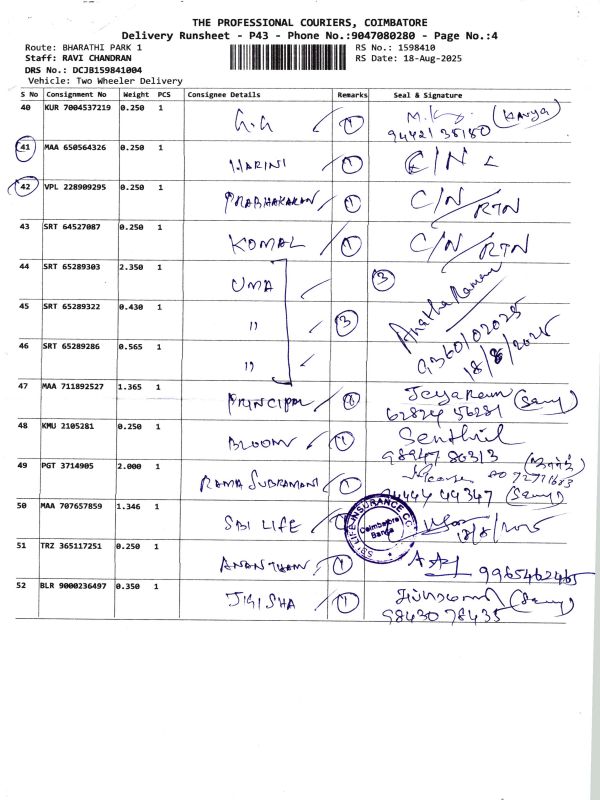 THE PROFESSIONAL COURIERS, COIMBATORE
Delivery Runsheet - P43 - Phone No.:9047080280 - Page No.:4
Route: BHARATHI PARK 1 RS No.: 1598410
Staff: RAVI CHANDRAN RS Date: 18-Aug-2025
DRS No.: DCJB159841004
Vehicle: Two Wheeler Delivery
S No Consignment No Weight PCS Consignee Details Remarks Seal & Signature
40 KUR 7004537219 0.250 1 G.G 1 (Kavya)
9442135180
41 MAA 650564326 0.250 1 HARINI 1 C/N
42 VPL 228909295 0.250 1 PRABHAKARAN 1 C/N/RTN
43 SRT 64527087 0.250 1 KOMAL 1 C/N/RTN
44 SRT 65289303 2.350 1 UMA 3
45 SRT 65289322 0.430 1 " 3 9360102025
46 SRT 65289286 0.565 1 " 18/8/2025
47 MAA 711892527 1.365 1 PRINCIPAL 1 Jeyaram
62824 56281
48 KMU 2105281 0.250 1 BLOOM 1 Senthil
98947 86313
49 PGT 3714905 2.000 1 RAMA SUBRAMANI 1
94444 44347
50 MAA 707657859 1.346 1 SBI LIFE SBI LIFE INSURANCE CO. Coimbatore 18/8/2025
51 TRZ 365117251 0.250 1 ANANTHAM 1 9965462465
52 BLR 9000236497 0.350 1 JIGISHA 1
98430 78435